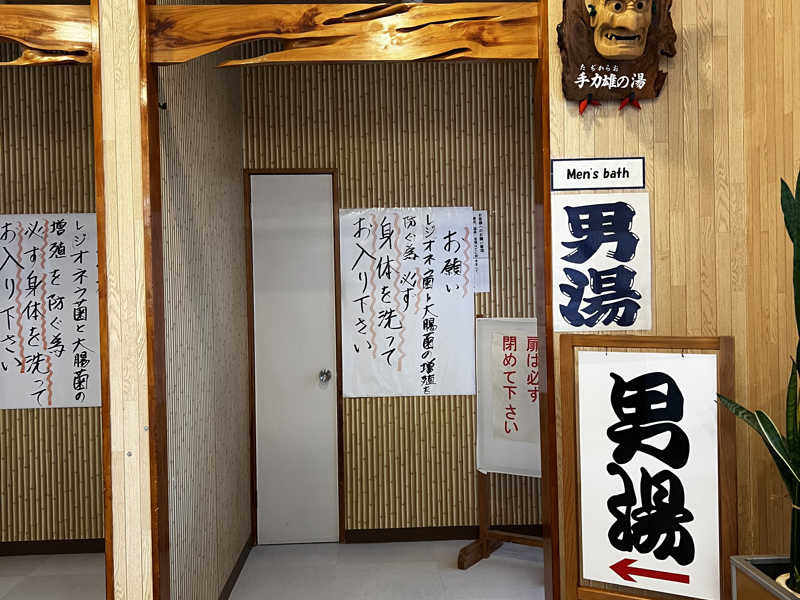 レジオネラ菌と大腸菌の
増殖を防ぐ為
必ず身体を洗って
お入り下さい
お願い
レジオネラ菌と大腸菌の増殖を
防ぐ為必ず
身体を洗って
お入り下さい
扉は必ず
閉めて下さい
たぢからお
手力雄の湯
Men's bath
男湯
男湯